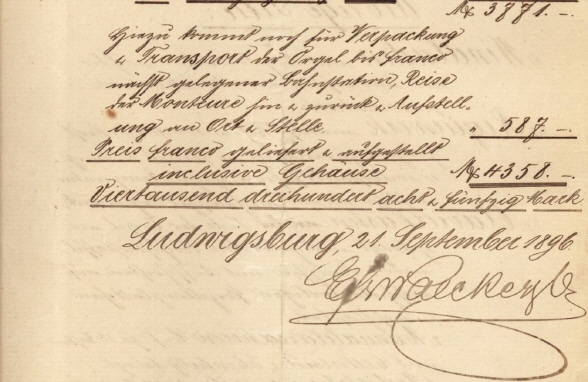 M 3771.-
Hiezu kommt noch für Verpackung
& Transport der Orgel bis franco
nächst gelegener Bahnstation, Reise
der Monteure hin & zurück & Aufstell-
ung an Ort & Stelle. " 587.-
Preis franco geliefert & aufgestellt
inclusive Gehäuse M 4358.-
Viertausend dreihundert acht & fünfzig Mark
Ludwigsburg, 21. September 1896.
EFWalcker & Cie